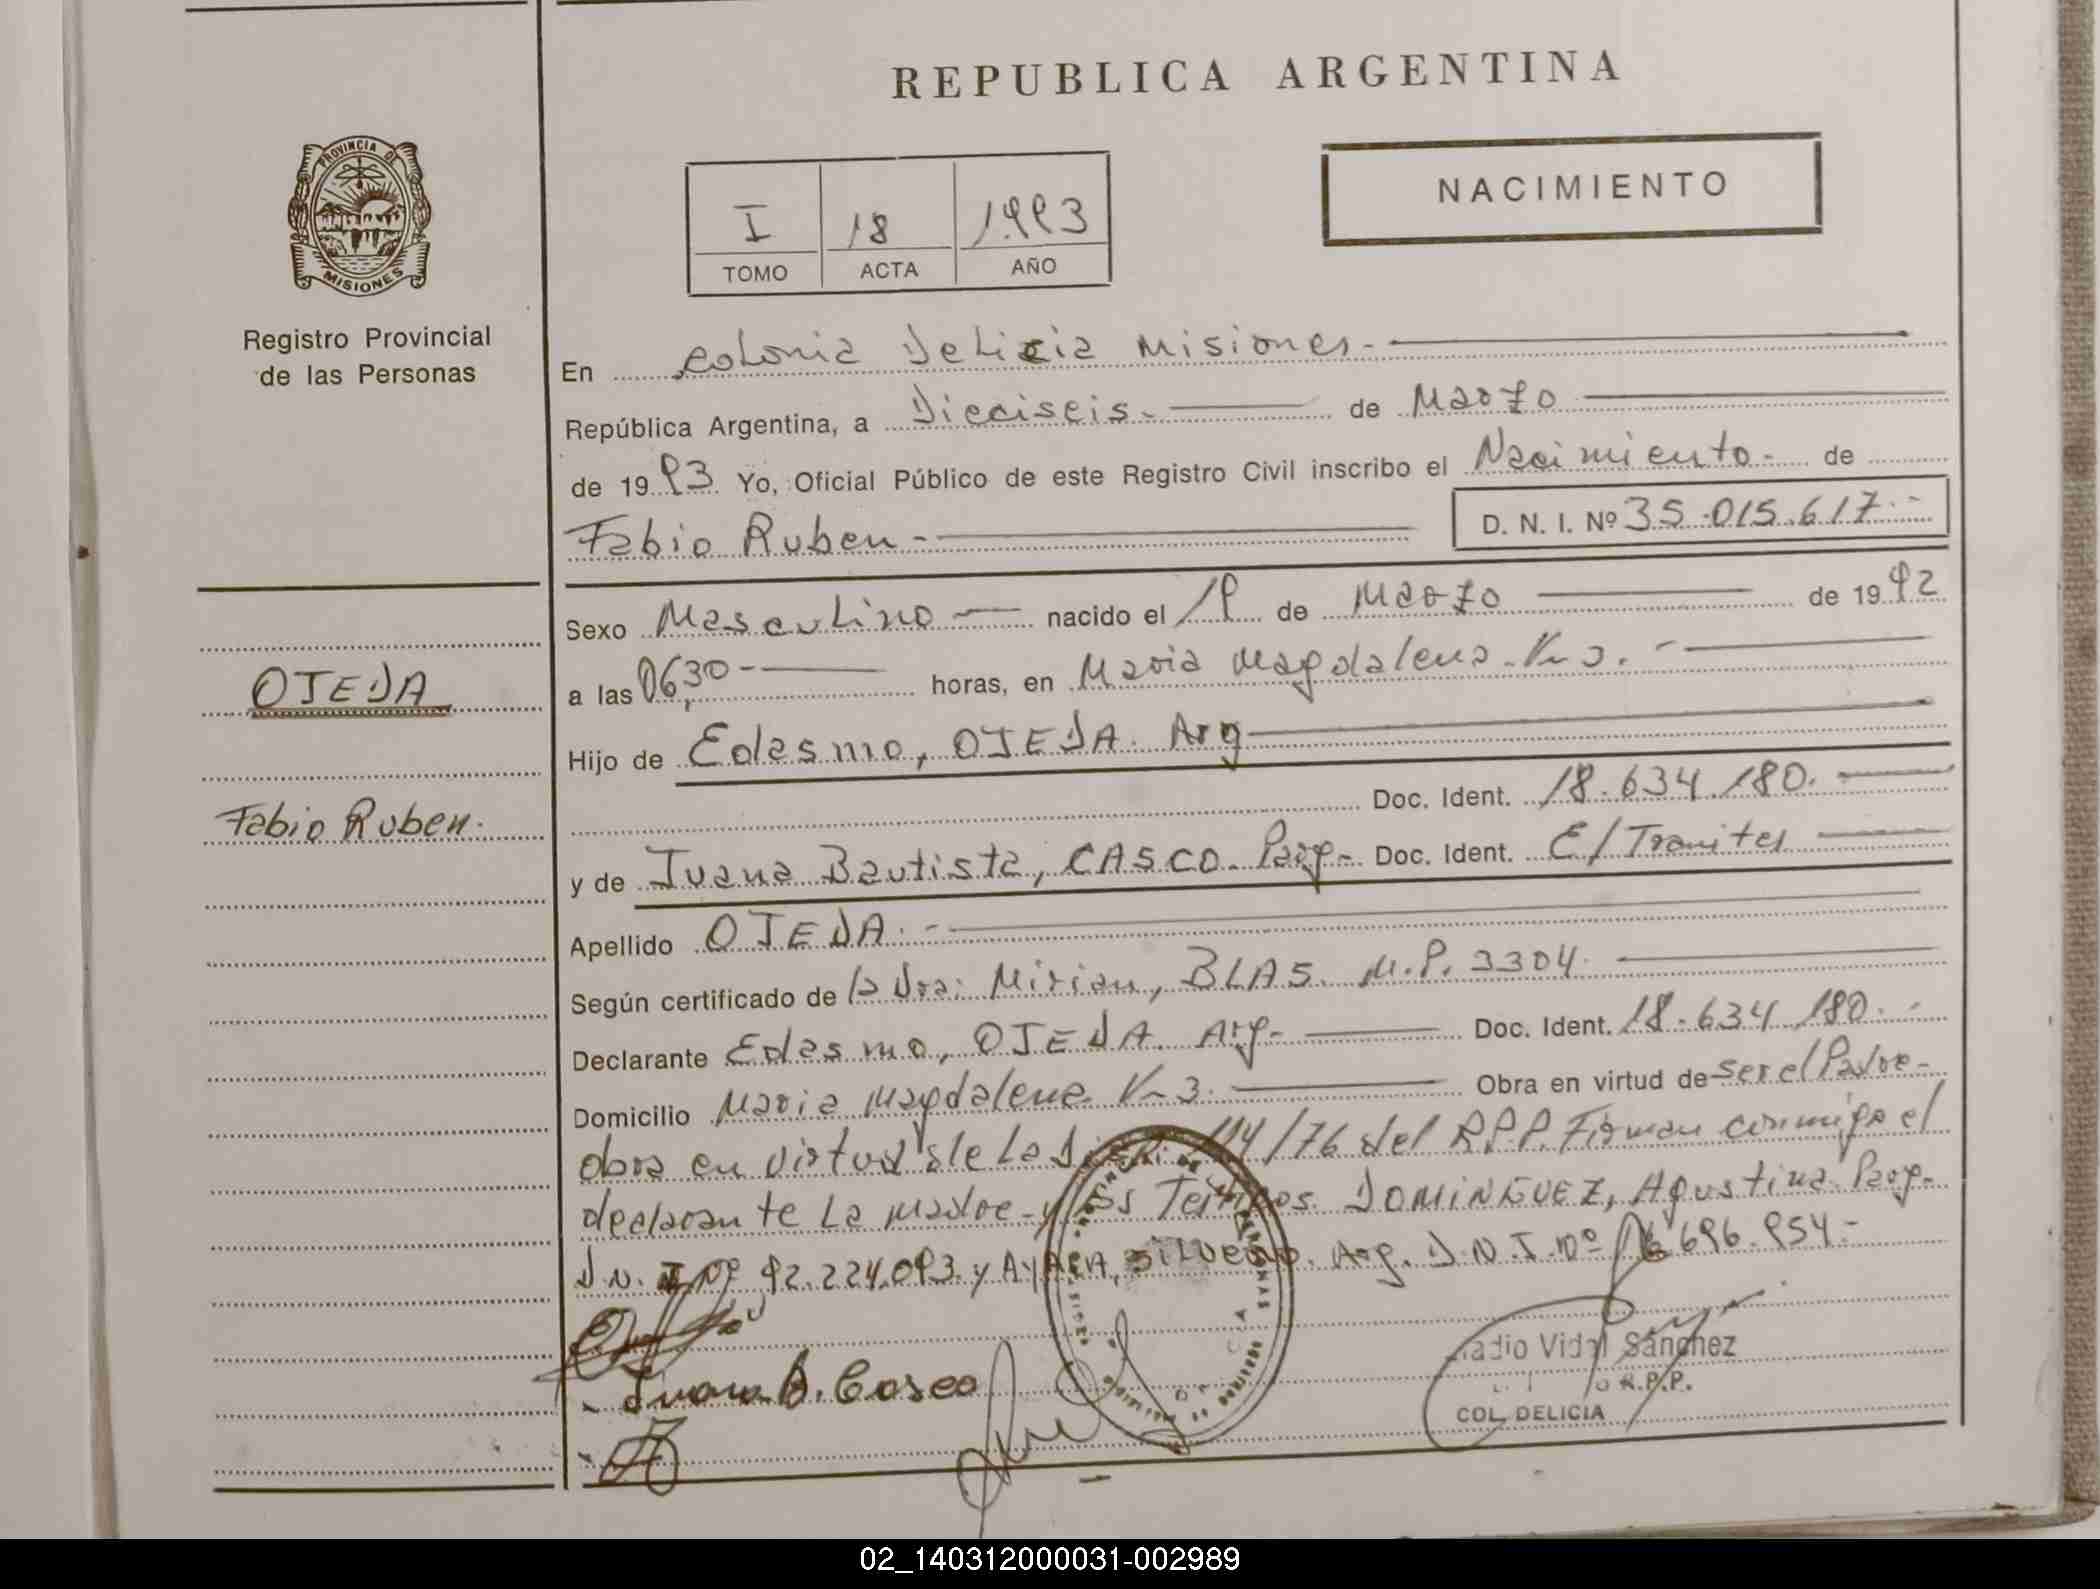 REPUBLICA ARGENTINA
PROVINCIA DE
MISIONES
Registro Provincial
de las Personas
I 18 1993
TOMO ACTA AÑO
NACIMIENTO
En Colonia Delicia Misiones.-
República Argentina, a Dieciseis.- de Marzo
de 1993 Yo, Oficial Público de este Registro Civil inscribo el Nacimiento.- de
Fabio Ruben.- D. N. I. Nº 35.015.617.-
Sexo Masculino nacido el 19 de Marzo de 1992
a las 06,30- horas, en Maria Magdalena. Km 3.-
Hijo de Edasmo, OJEDA. Arg
Doc. Ident. 18.634.180.
y de Juana Bautista, CASCO. Parg- Doc. Ident. E/Tramites
Apellido OJEDA.-
Según certificado de la Dra: Mirian, BLAS. M.P. 3304.
Declarante Edasmo, OJEDA. Arg- Doc. Ident. 18.634.180.-
Domicilio Maria Magdalena Km 3. Obra en virtud de ser el Padre-
obra en virtud de la 114/76 del R.P.P. Firman conmigo el
declarante La madre y los Testigos. DOMINGUEZ, Agustina Parg-
D.N.I Nº 92.224.093. y AYALA, SILVERIO. Arg. D.N.I.Nº 16.696.954.-
Juana B. Casco
OJEDA
Fabio Ruben.
Vidal Sánchez
R.P.P.
COL. DELICIA
02_140312000031-002989